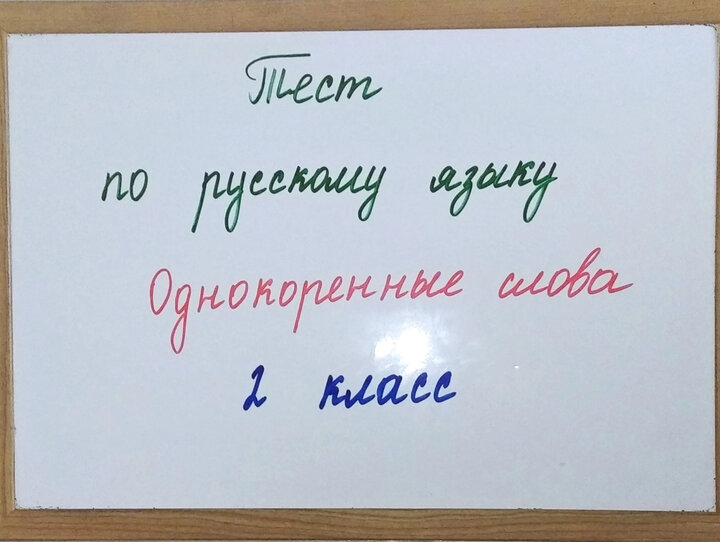 Тест
по русскому языку
Однокоренные слова
2 класс